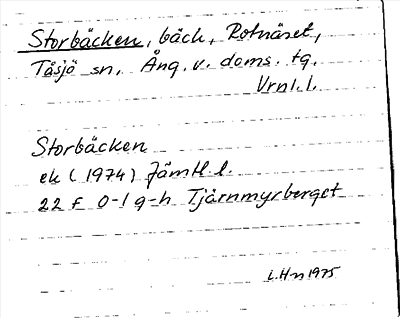 Storbäcken, bäck, Rotnäset,
Tåsjö sn, Ång. v. doms. tg.
Vrnl. l.
Storbäcken
ek (1974) Jämtl. l.
22 F 0-1 g-h Tjärnmyrberget
L.Hn 1975